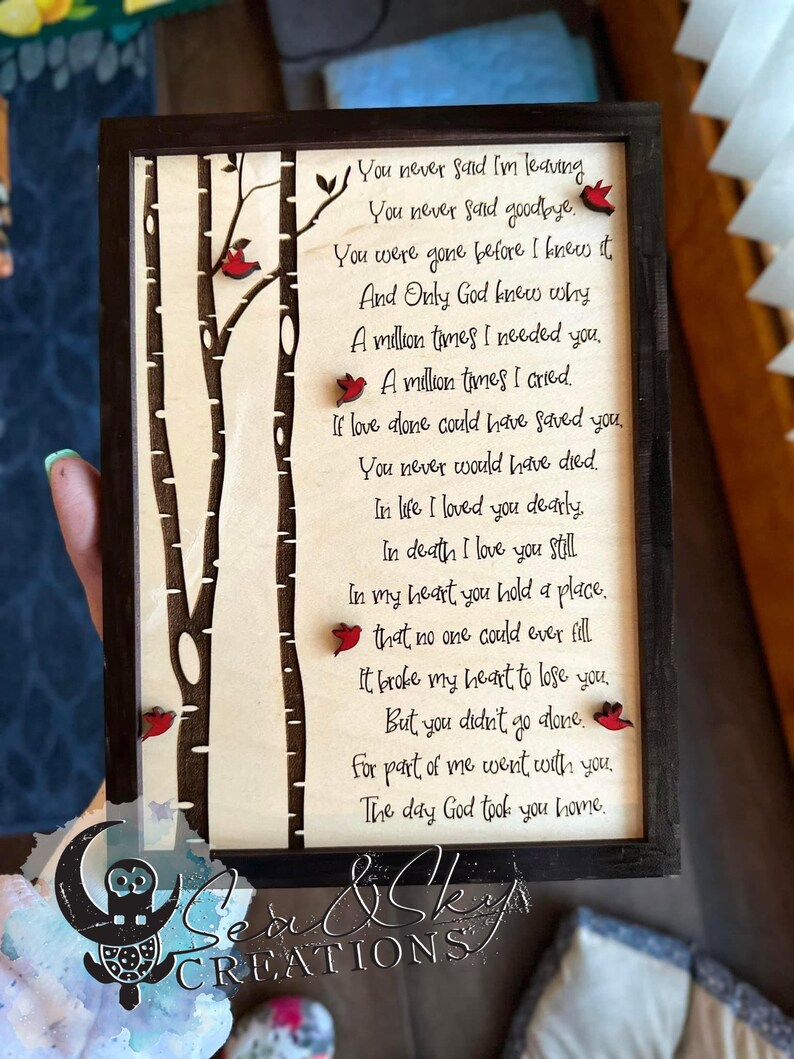 You never said I'm leaving
You never said goodbye.
You were gone before I knew it,
And Only God knew why
A million times I needed you,
A million times I cried.
If love alone could have saved you,
You never would have died.
In life I loved you dearly,
In death I love you still
In my heart you hold a place,
that no one could ever fill
It broke my heart to lose you,
But you didn't go alone.
For part of me went with you,
The day God took you home.
Sea & Sky
CREATIONS